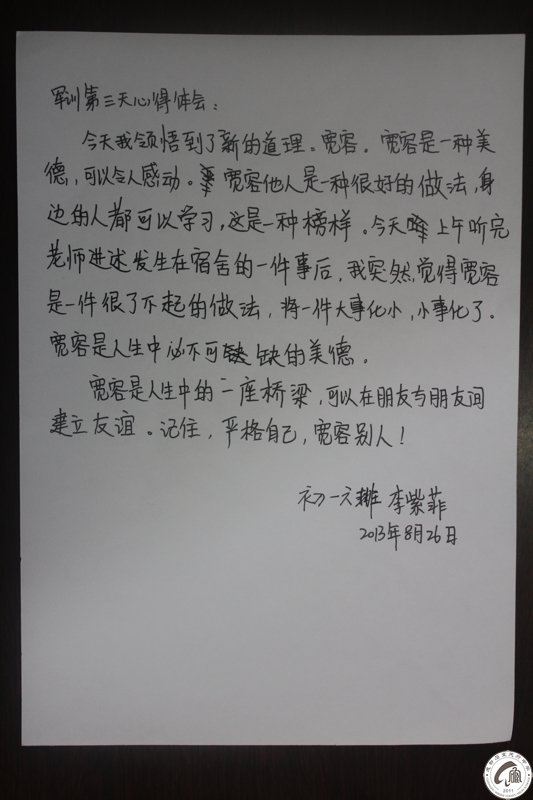 军训第三天心得体会：
今天我领悟到了新的道理。宽容。宽容是一种美
德，可以令人感动。宽容他人是一种很好的做法，身
边的人都可以学习，这是一种榜样。今天上午听完
老师讲述发生在宿舍的一件事后，我突然觉得宽容
是一件很了不起的做法，将一件大事化小，小事化了。
宽容是人生中必不可缺的美德。
宽容是人生中的一座桥梁，可以在朋友与朋友间
建立友谊。记住，严格自己，宽容别人！
初一六排 李紫菲
2013年8月26日
2011